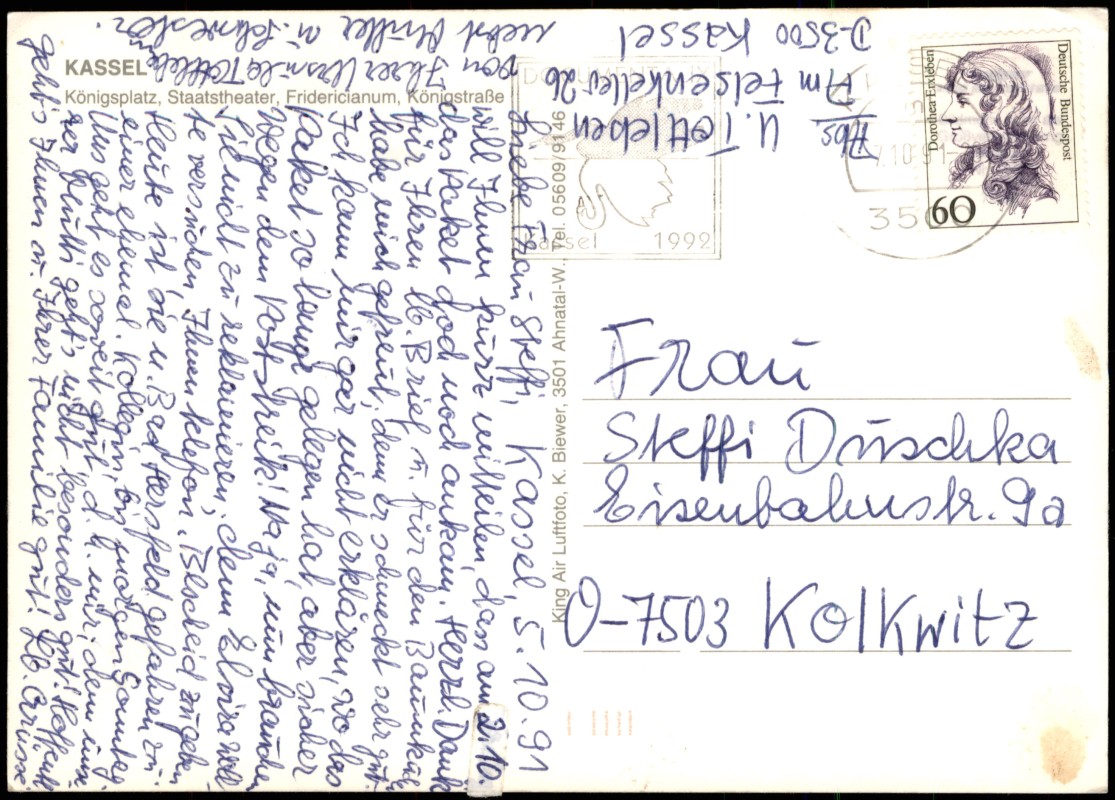 KASSEL
Königsplatz, Staatstheater, Fridericianum, Königstraße
King Air Luftfoto, K. Biewer, 3501 Ahnatal-W., Tel. 05609/9146
Kassel, 5.10.91
Liebe Frau Steffi,
will Ihnen kurz mitteilen, dass am 2.10.
das Paket doch noch ankam. Herzl. Dank
für Ihren lb. Brief u. für den Baumkuchen
habe mich gefreut; denn er schmeckt sehr gut.
Ich kann mir gar nicht erklären, wo das
Paket so lange gelegen hat, aber sicher
wegen dem Poststreik! Na ja, nun brauchen
Sie nicht zu reklamieren; denn Elvira woll-
te versuchen, Ihnen telefon. Bescheid zu geben
Heute ist sie n. Bad Hersfeld gefahren zu
einer ehemal. Kollegin, bis morgen Sonntag.
Uns geht es soweit gut, d. h. mir; denn unse-
rer Mutti geht's nicht besonders gut! Hoffentl.
geht's Ihnen u. Ihrer Familie gut! Lb. Grüsse
von Ihrer Ursula Tottleben
nebst Mutter u. Schwester.
Abs
U. Tottleben
Am Felsenkeller 26
D-3500 Kassel
Deutsche Bundespost
Dorothea Erxleben
60
Kassel 1992
Frau
Steffi Duschka
Eisenbahnstr. 9a
O-7503 Kolkwitz